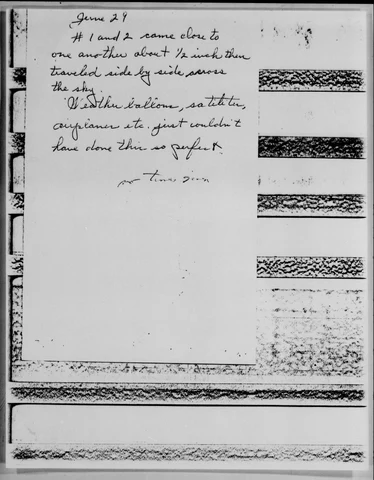 June 29
# 1 and 2 came close to
one another about 1/2 inch then
traveled side by side across
the sky.
Weather balloons, satelites,
airplanes etc. just couldn't
have done this so perfect.
no time